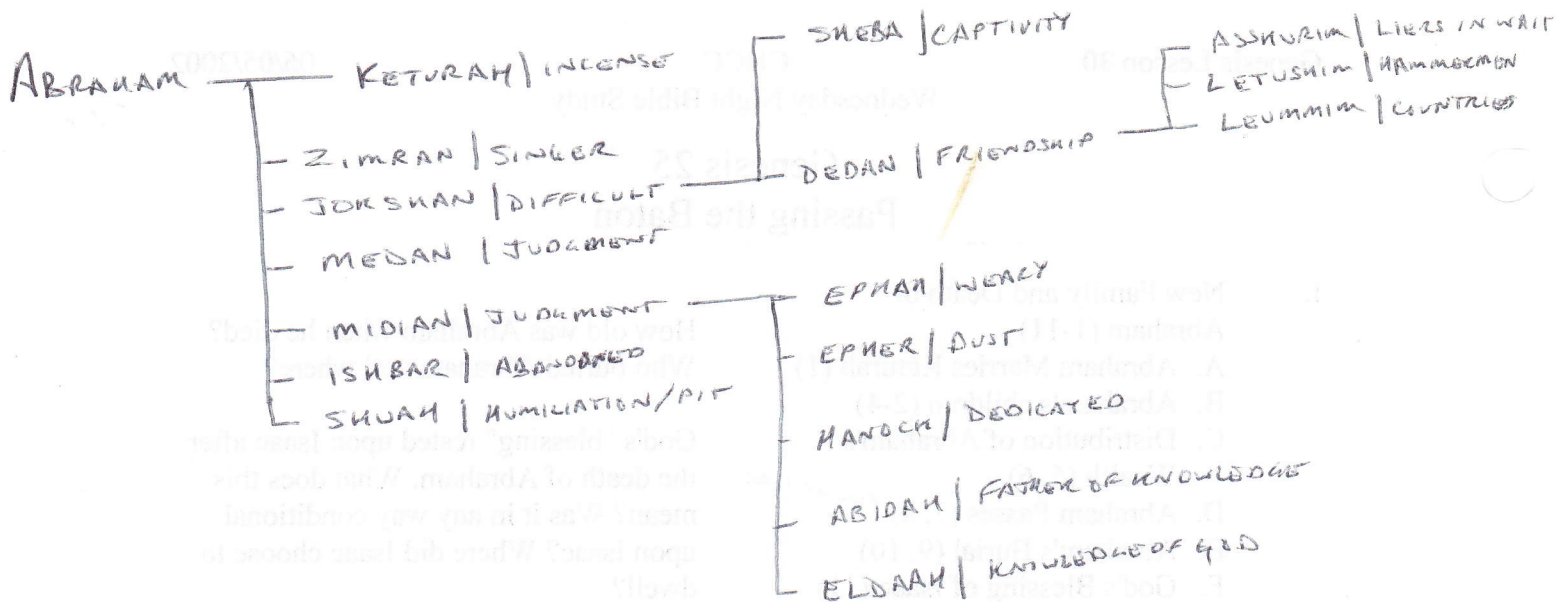 ABRAHAM
KETURAH | INCENSE
ZIMRAN | SINGER
JOKSHAN | DIFFICULT
MEDAN | JUDGMENT
MIDIAN | JUDGMENT
ISHBAR | ABANDONED
SHUAH | HUMILIATION/PIT
SHEBA | CAPTIVITY
DEDAN | FRIENDSHIP
ASSHURIM | LIERS IN WAIT
LETUSHIM | HAMMERMEN
LEUMMIM | COUNTRIES
EPHAH | WEARY
EPHER | DUST
HANOCH | DEDICATED
ABIDAH | FATHER OF KNOWLEDGE
ELDAAH | KNOWLEDGE OF GOD